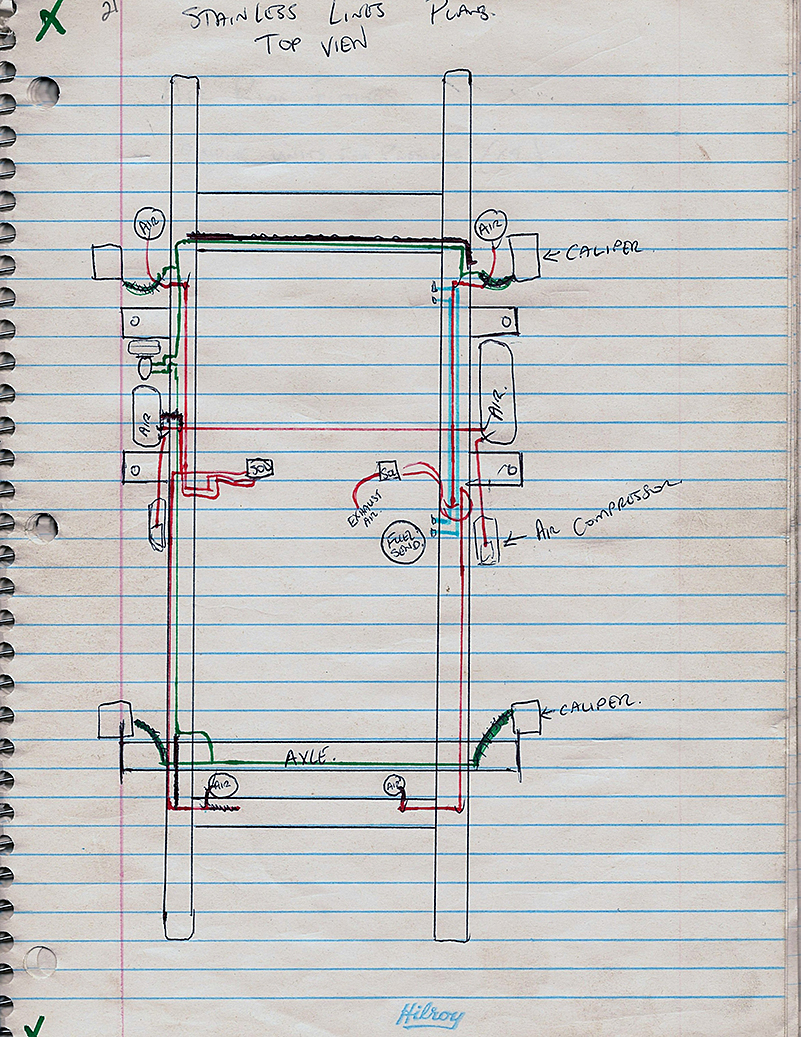 21
STAINLESS LINES PLANS.
TOP VIEW
AIR
AIR
← CALIPER.
O
O
AIR
AIR.
SOL
SOL
O
EXHAUST
AIR
FUEL
SEND.
← AIR COMPRESSOR
← CALIPER.
AXLE.
AIR
AIR
Hilroy